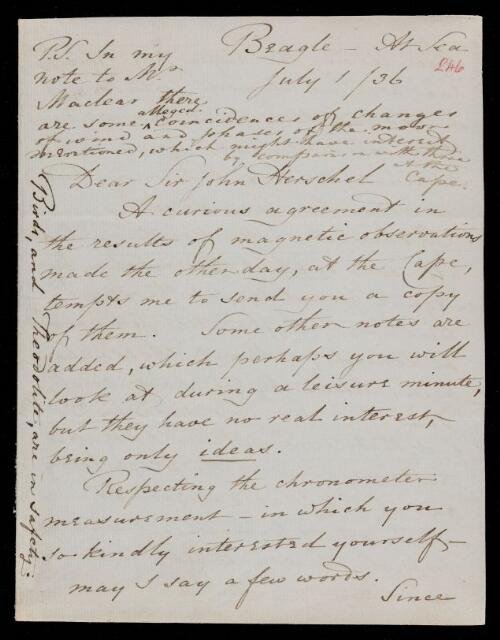 Beagle – At Sea
July 1/36
246
P.S. In my
note to Mr.
Maclear there
are some alleged coincidences of changes
of wind and phases of the moon
mentioned, which might have interest
by comparison with those
at the
Cape.
Dear Sir John Herschel
A curious agreement in
the results of magnetic observations
made the other day, at the Cape,
tempts me to send you a copy
of them. Some other notes are
added, which perhaps you will
look at during a leisure minute,
but they have no real interest,
being only ideas.
Respecting the chronometer
measurement – in which you
so kindly interested yourself –
may I say a few words.
Since
Birds, and Theodolite, are in safety.